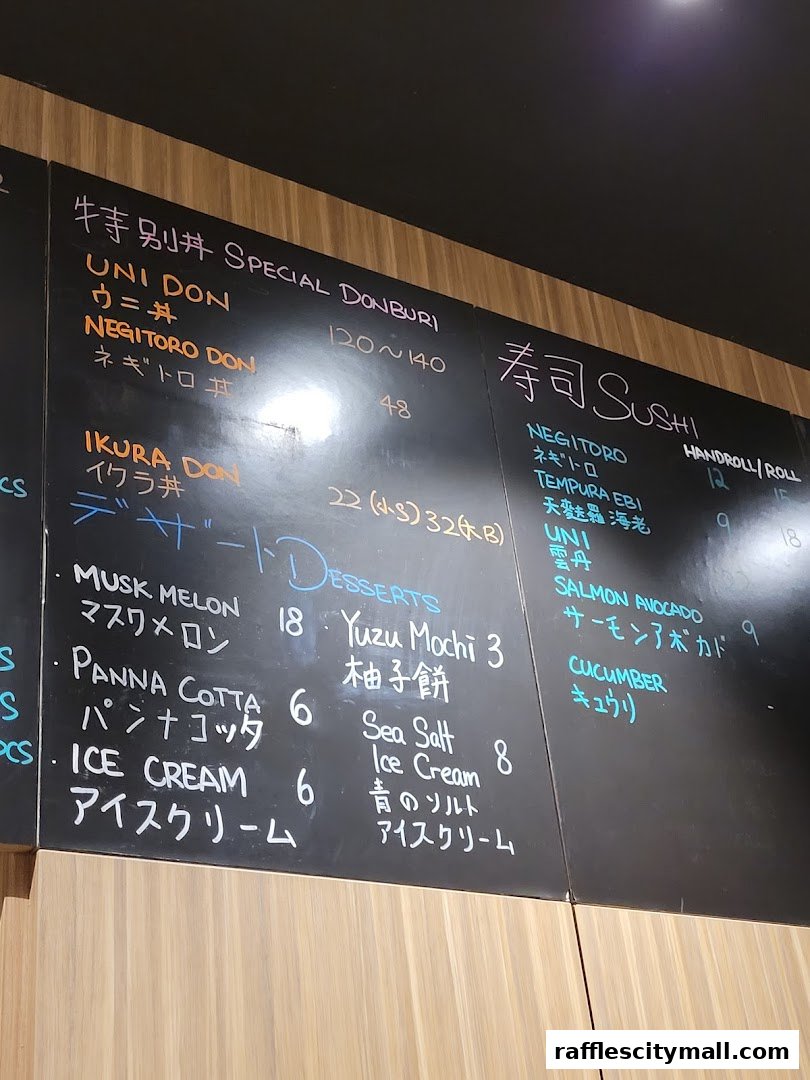 特別丼 SPECIAL DONBURI
UNI DON
ウニ丼 120〜140
NEGITORO DON
ネギトロ丼 48
IKURA DON
イクラ丼 22 (小S) 32 (大B)
デザート DESSERTS
· MUSK MELON 18
マスクメロン
· PANNA COTTA 6
パンナコッタ
· ICE CREAM 6
アイスクリーム
· Yuzu Mochi 3
柚子餅
Sea Salt
Ice Cream 8
青のソルト
アイスクリーム
寿司 SUSHI
HANDROLL/ROLL
NEGITORO 12 15
ネギトロ
TEMPURA EBI 9 18
天麩羅海老
UNI
雲丹
SALMON AVOCADO 9
サーモンアボカド
CUCUMBER
キュウリ
CS
S
S
PCS
rafflescitymall.com